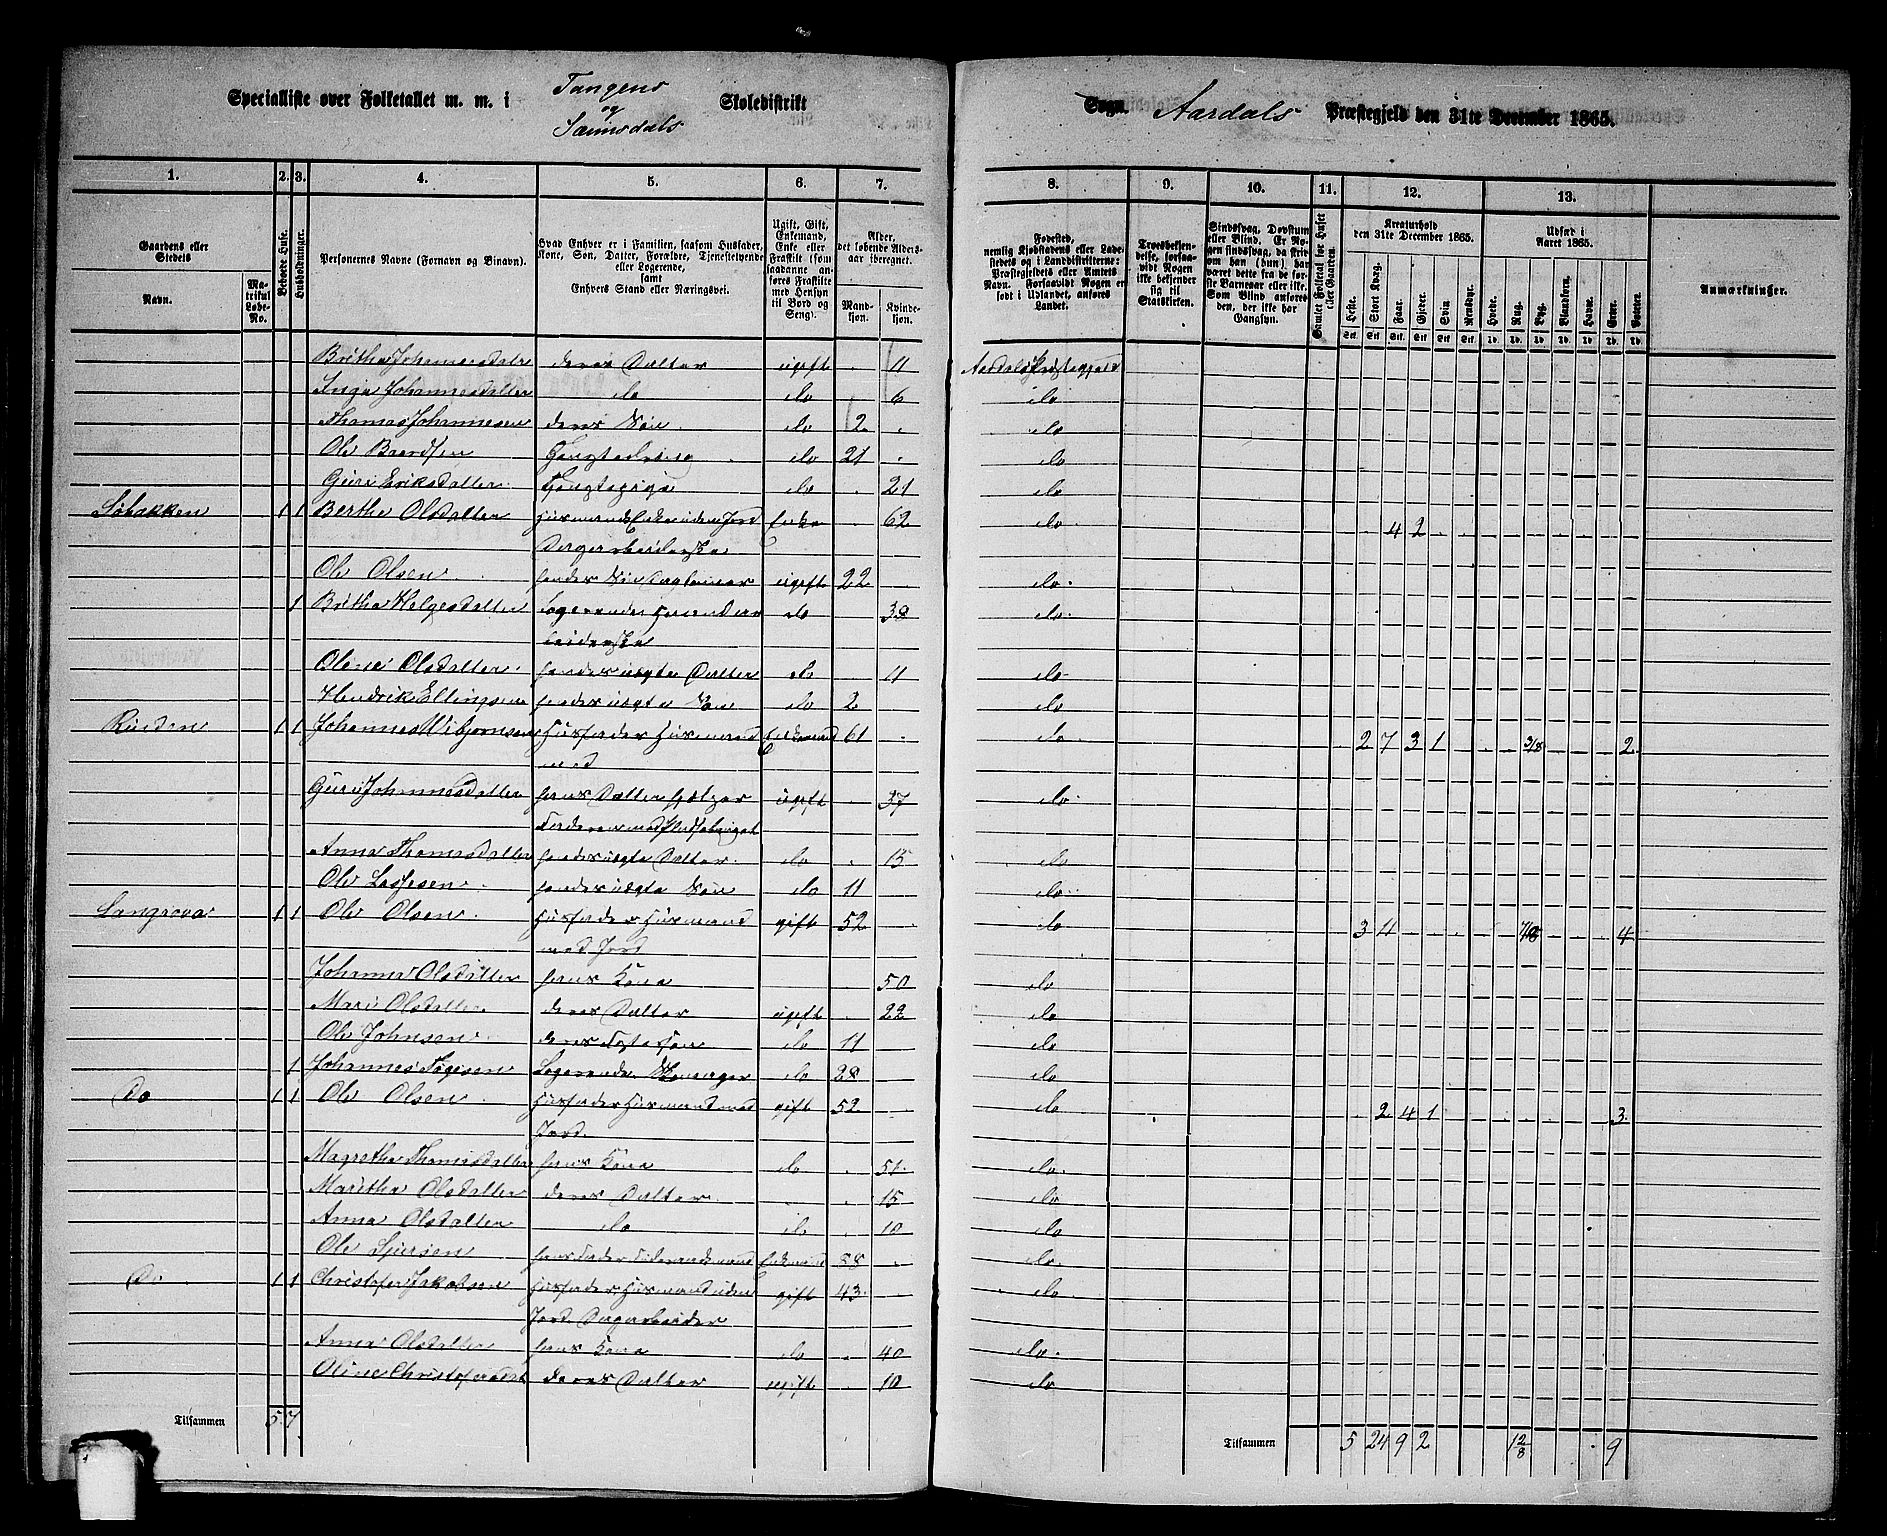 Specialliste over Folketallet m. m. i Tangens og Skoledistrikt Sogn. Aardals Præstegjeld den 31te December 1865.
1. 2. 3. 4. 5. 6. 7. 8. 9. 10. 11. 12. 13.
Gaardens eller Stedets
Navn. Matrikul Løbe-No.
Beboede Huse.
Husholdninger.
Personernes Navne (Fornavn og Binavn).
Hvad Enhver er i Familien, saasom Husfader, Kone, Søn, Datter, Forældre, Tjenestetyende eller Logerende, samt Enhvers Stand eller Næringsvei.
Ugift, Gift, Enkemand, Enke eller Fraskilt (som saadanne anføres Fraskilte med Hensyn til Bord og Seng).
Alder, det løbende Aldersaar iberegnet.
Mandkjøn. Kvindekjøn.
Fødested, nemlig Kjøbstadens eller Ladestedets og i Landdistrikterne: Præstegjeldets eller Amtets Navn. Forsaavidt Nogen er født i Udlandet, anføres Landet.
Troesbekjendelse, forsaavidt Nogen ikke bekjender sig til Statskirken.
Sindssvag, Døvstum eller Blind. Er Nogen sindssvag, da skrives om han (hun) har været dette fra de første Barneaar eller ikke. Som Blind anføres den, der ikke har Gangsyn.
Samlet Folketal for Huset eller Gaarden.
Kreaturhold den 31te December 1865.
Heste. Stort Kvæg. Faar. Gjeder. Svin. Rensdyr.
Udsæd i Aaret 1865.
Hvede. Rug. Byg. Blandkorn. Havre. Erter. Poteter.
Anmærkninger.
Britha Johannesdatter deres Datter ugift . 11 Aardals Præstegjeld
Inga Johannesdatter do do . 6 do
Thomas Johannesen deres Søn do 2 . do
Ole Baardsen do 21 . do
Guri Eriksdatter do . 21 do
Søbakken 1 1 Berthe Olsdatter Husmands Enke uden Jord Enke . 62 do 4 2
Dagarbeiderske
Ole Olsen hendes Søn ugift 22 do
1 Britha Helgesdatter Logerende do . 38 do
Olene Olsdatter hendes uegte Datter do . 11 do
Hendrik Ellingsen hendes uegte Søn do 2 do
Ruden 1 1 Johannes Husfader Husmand Enkemand 61 . do 2 7 3 1 3/8 2
med
Guri Johannesdatter hans Datter ugift . 37 do
Faderen med
Anna Thomasdatter hendes uegte Datter do . 15 do
Ole Lassesen hendes uegte Søn do 11 do
1 1 Ole Olsen Husfader Husmand gift 52 . do 3 4 4
med Jord
Johanna Olsdatter hans Kone 50 do
Mari Olsdatter deres Datter ugift . 22 do
Ole Johnsen deres Fostersøn do 11 do
1 Johannes Logerende Skomager do 28 do
Do 1 1 Ole Olsen Husfader Husmand med gift 52 . do 2 4 1 3
Jord
Magretha Thomasdatter hans Kone do . 51 do
Maritha Olsdatter deres Datter . 15 do
Anna Olsdatter do do . 10 do
Ole hans Fader Enkemand 88 . do
Do 1 1 Christofer Jakobsen Husfader Husmand uden gift 43 . do
Jord Dagarbeider
Anna Olsdatter hans Kone do . 40 do
Oline Christofersdat deres Datter ugift . 10 do
Tilsammen 5 7 Tilsammen 5 24 9 2 1 2/8 9